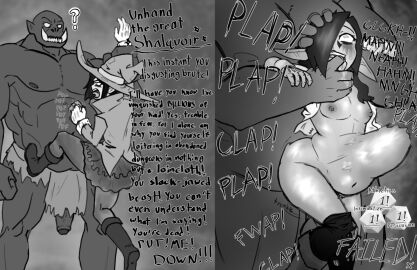 ?
Unhand
the great
Shalquoir
This instant you
disgusting brute!
I'll have you know I've
vanquished MILLIONS of
your kind! Yes, tremble
in fear for I alone am
why you find yourself
loitering in abandoned
dungeons in nothing
but a loincloth! You
slack-jawed
beast! You can't
even understand
what I'm saying!
You're dead!
PUT! ME!
DOWN!!!
PLAP!
PLAP!
CLAP!
PLAP!
FWAP!
CLAP!
1!
1!
1!
FAILED!